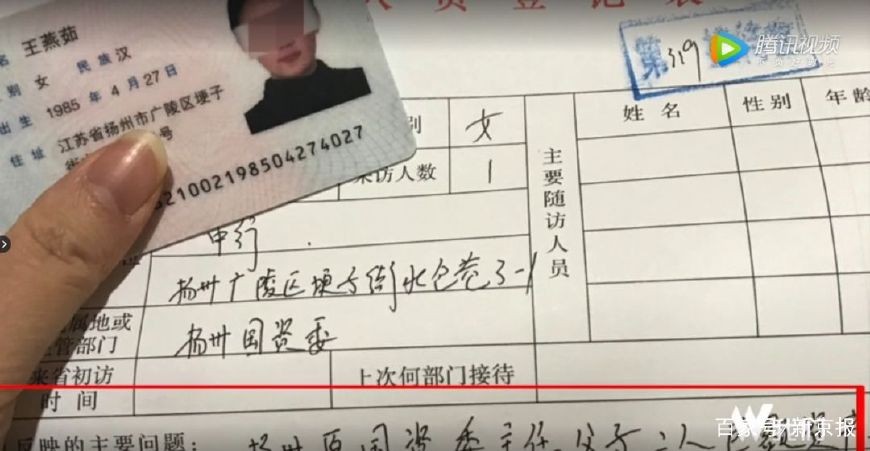 人员登记表
名 王燕茹
别 女 民族 汉
出生 1985 年 4 月 27 日
住址 江苏省扬州市广陵区埂子
号
21002198504274027
第319
腾讯视频
姓名 性别 年龄
别 女
来访人数 1
主要随访人员
中行
扬州广陵区埂子街
属地或
管部门
扬州国资委
来省初访
时间
上次何部门接待
反映的主要问题：
扬州原国资委主任父子二人
百家号/新京报